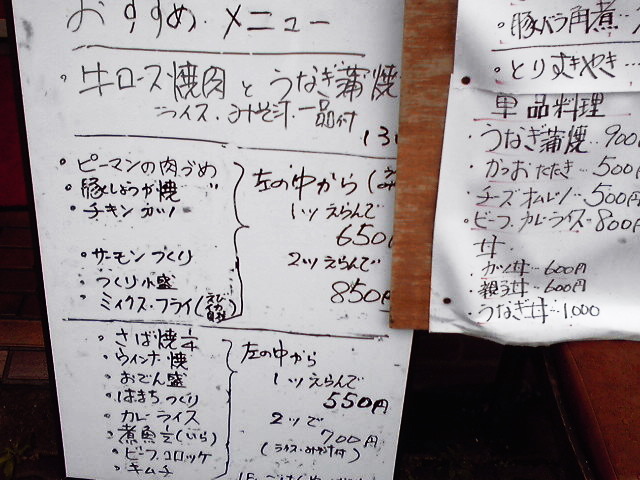 おすすめ・メニュー
・牛ロース焼肉とうなぎ蒲焼
ライス・みそ汁・一品付
・ピーマンの肉づめ
・豚しょうが焼 〃
・チキンカツ
・サーモンつくり
・つくり小盛
・ミックス・フライ
左の中から
1ツえらんで
650円
2ツえらんで
850円
・さば焼
・ウインナ焼
・おでん盛
・はまちつくり
・カレーライス
・ビーフコロッケ
・キムチ
左の中から
1ツえらんで
550円
2ツで
700円
(ライス・みそ汁付)
・豚バラ角煮・
・とりすきやき・
単品料理
・うなぎ蒲焼・・900円
・かつおたたき・・500円
・チーズオムレツ・500円
・ビーフ、カレーライス・800円
丼
・カツ丼・・600円
・親子丼・・600円
・うなぎ丼・・1000